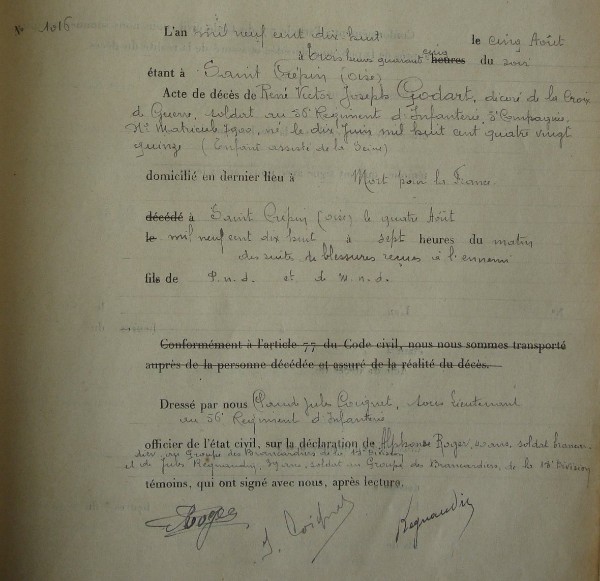 N° 1016
L'an mil neuf cent dix huit le cinq Août
à trois heures quarante cinq heures du soir
étant à Saint Crépin (Oise)
Acte de décès de René Victor Joseph Godart, décoré de la Croix
de Guerre, soldat au 56e Régiment d'Infanterie, 3e Compagnie
N° Matricule 7900, né le dix Juin mil huit cent quatre vingt
quinze (Enfant assisté de la Seine)
domicilié en dernier lieu à Mort pour la France
décédé à Saint Crépin (Oise) le quatre Août
le mil neuf cent dix huit à sept heures du matin
des suite de blessures reçues à l'ennemi
fils de P.n.d. et de M.n.d.
Conformément à l'article 77 du Code civil, nous nous sommes transporté
auprès de la personne décédée et assuré de la réalité du décès.
Dressé par nous Claude Jules Coignet, sous Lieutenant
au 56e Régiment d'Infanterie
officier de l'état civil, sur la déclaration de Alphonse Roger, ans, soldat brancar-
dier au Groupe des Brancardiers de la Division
et de Jules Regnaudin, 39 ans, soldat au Groupe des Brancardiers, de la Division
témoins, qui ont signé avec nous, après lecture,
Roger J. Coignet Regnaudin